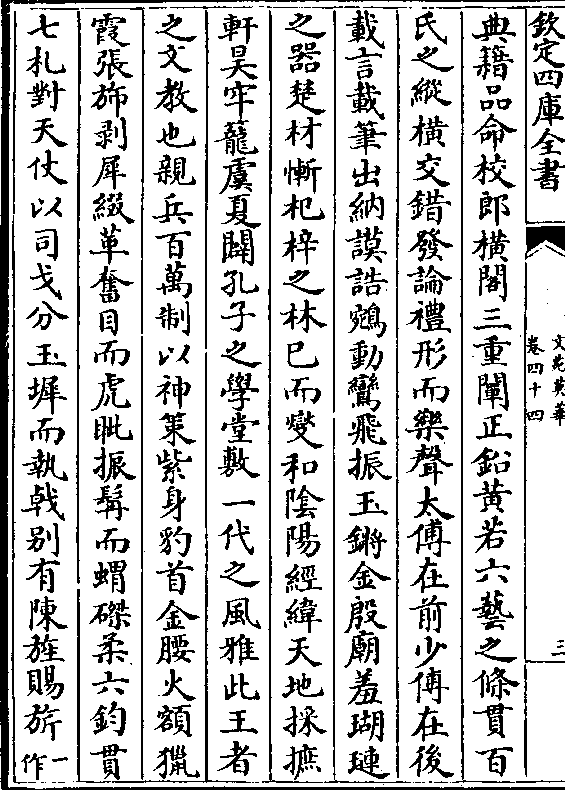 欽定四庫全書
文苑英華
卷四十四
三
典籍品命校郎橫閣三重闡正鉛黃若六藝之條貫百
氏之縱橫交錯發論禮形而樂聲太傅在前少傅在後
載言載筆出納謨誥鵷動鸞飛振玉鏘金殷廟羞瑚璉
之器楚材慚杞梓之林已而燮和陰陽經緯天地採摭
軒昊牢籠虞夏闢孔子之學堂敷一代之風雅此王者
之文教也親兵百萬制以神策紫身豹首金腰火額獵
霞張斾剥犀綴革奮目而虎眦振髯而蝟磔柔六鈞貫
七札對天仗以司戈分玉墀而執戟別有陳旌賜旂一作